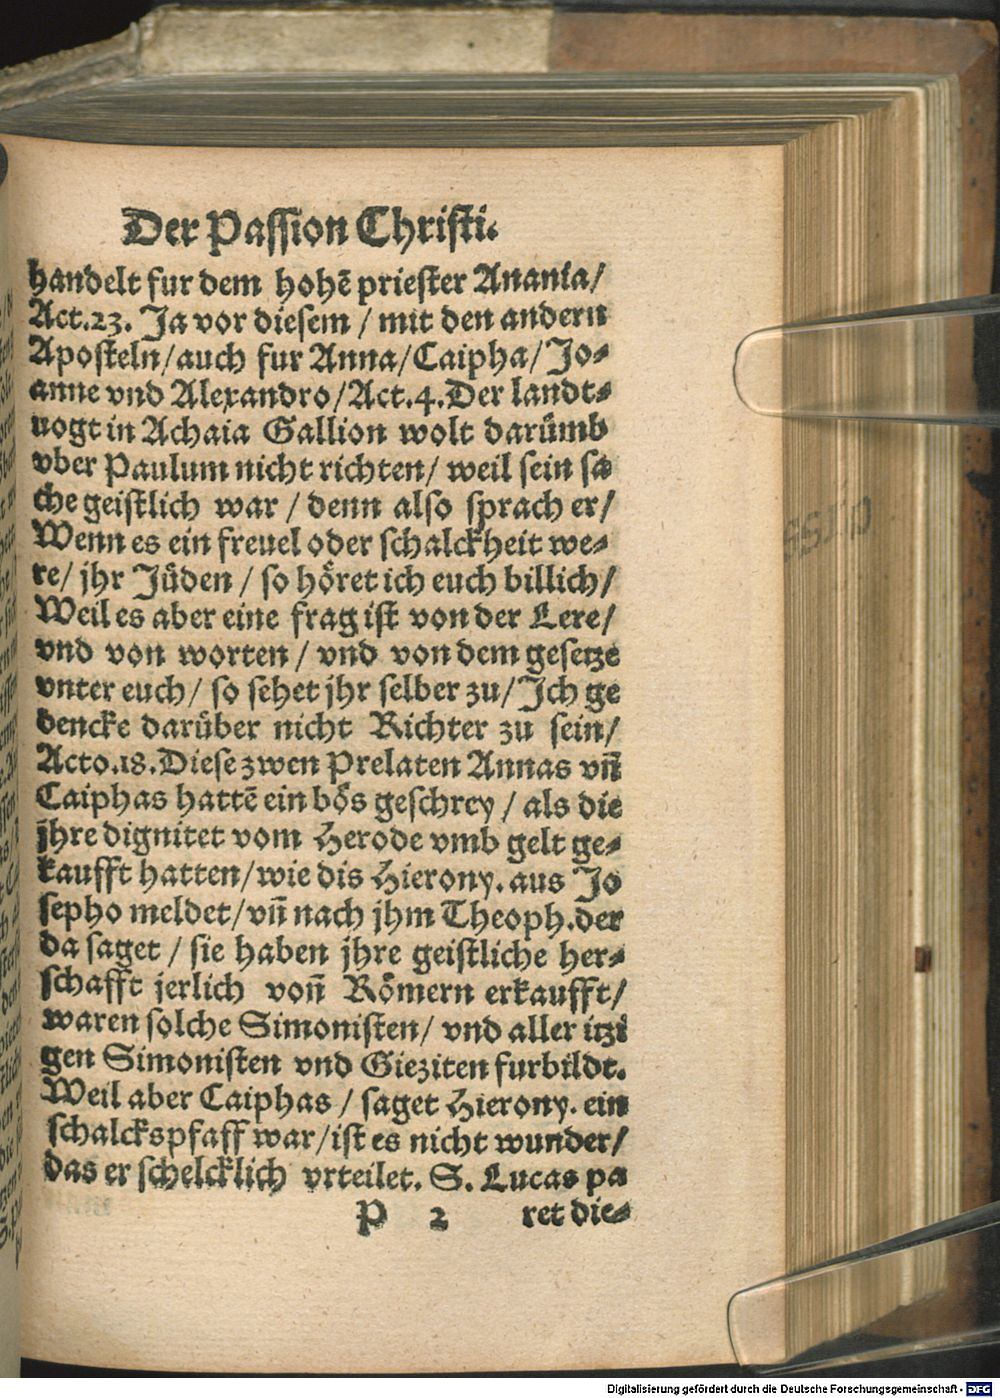 Der Passion Christi.
handelt fur dem hohē priester Anania/
Act.23. Ja vor diesem / mit den andern
Aposteln/auch fur Anna/Caipha/Jo-
anne vnd Alexandro/Act.4.Der landt-
uogt in Achaia Gallion wolt darůmb
vber Paulum nicht richten/ weil sein sa
che geistlich war / denn also sprach er/
Wenn es ein freuel oder schalckheit we-
re/ jhr Jüden / so höret ich euch billich/
Weil es aber eine frag ist von der Lere/
vnd von worten / vnd von dem gesetze
vnter euch/ so sehet jhr selber zu/Ich ge
dencke darüber nicht Richter zu sein/
Acto.18.Diese zwen Prelaten Annas vn̄
Caiphas hattē ein bös geschrey / als die
jhre dignitet vom Herode vmb gelt ge-
kaufft hatten/wie dis Hierony. aus Jo
sepho meldet/vn̄ nach jhm Theoph.der
da saget / sie haben jhre geistliche her-
schafft jerlich von̄ Römern erkaufft/
waren solche Simonisten/ vnd aller itzi
gen Simonisten vnd Gieziten furbildt.
Weil aber Caiphas / saget Hierony. ein
schalckspfaff war/ist es nicht wunder/
das er schelcklich vrteilet. S. Lucas pa
P 2 ret die-
Digitalisierung gefördert durch die Deutsche Forschungsgemeinschaft - DFG